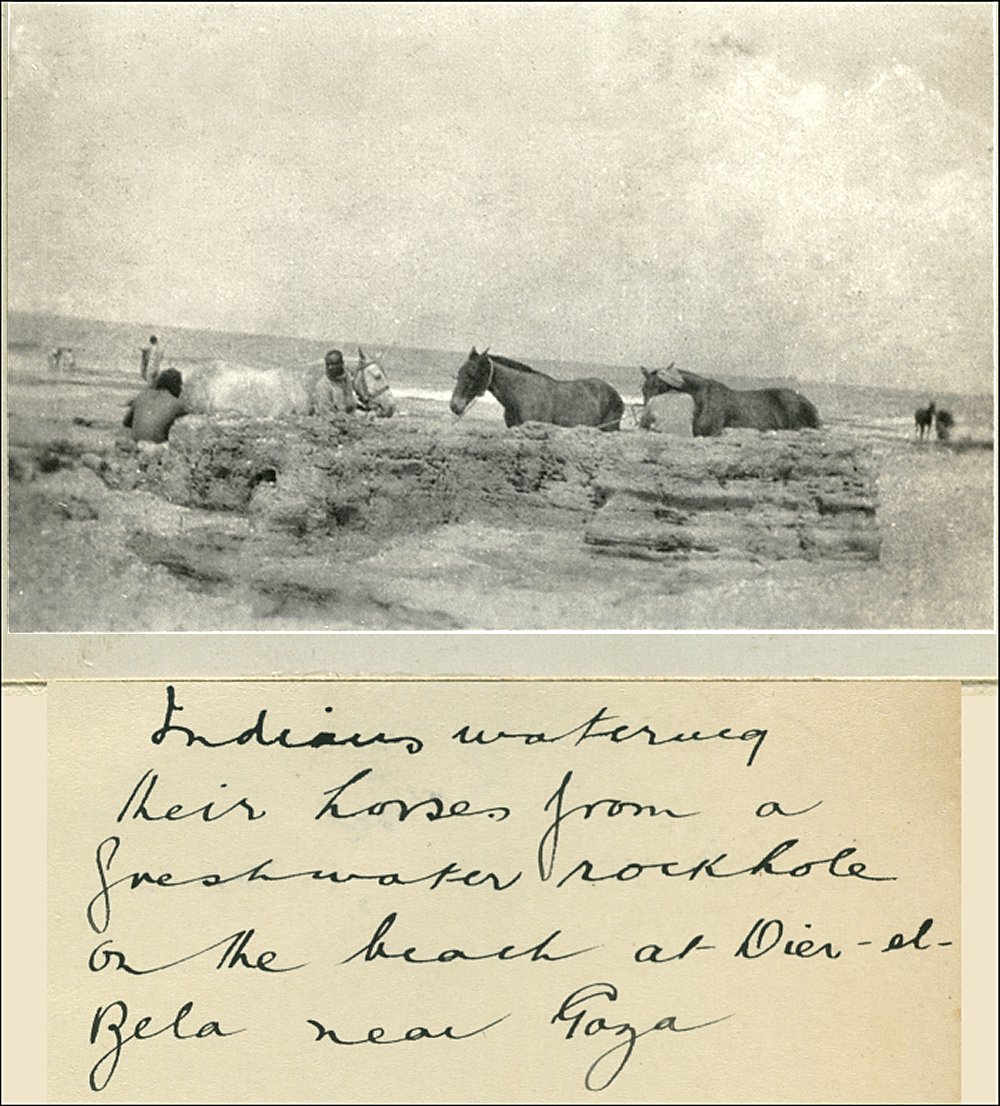 Indians watering
their horses from a
freshwater rockhole
on the beach at Dier-el-
Bela near Gaza